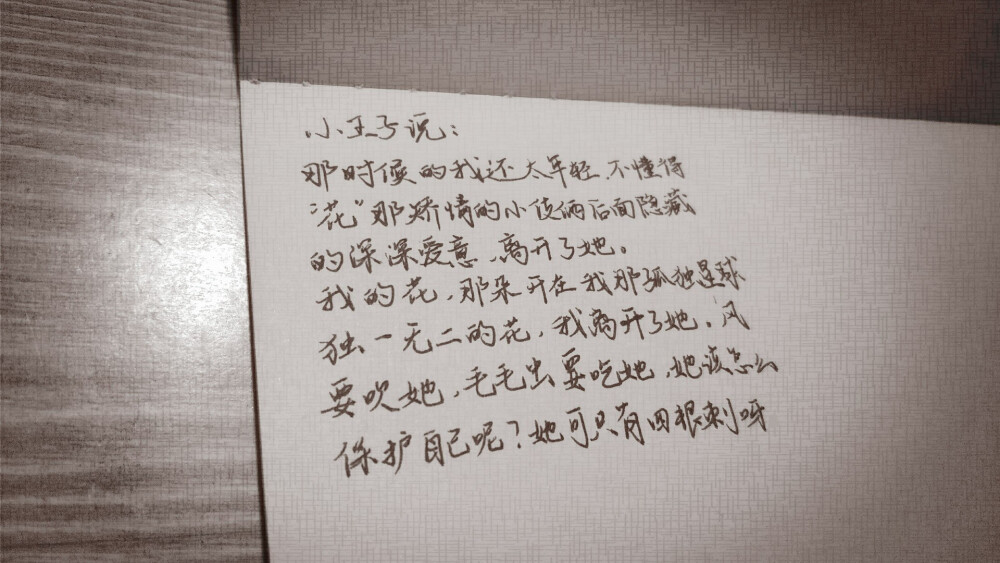 小王子说：
那时候的我还太年轻，不懂得
“花”那矫情的小伎俩后面隐藏
的深深爱意，离开了她。
我的花，那朵开在我那孤独星球
独一无二的花，我离开了她，风
要吹她，毛毛虫要吃她，她该怎么
保护自己呢？她可只有四根刺呀